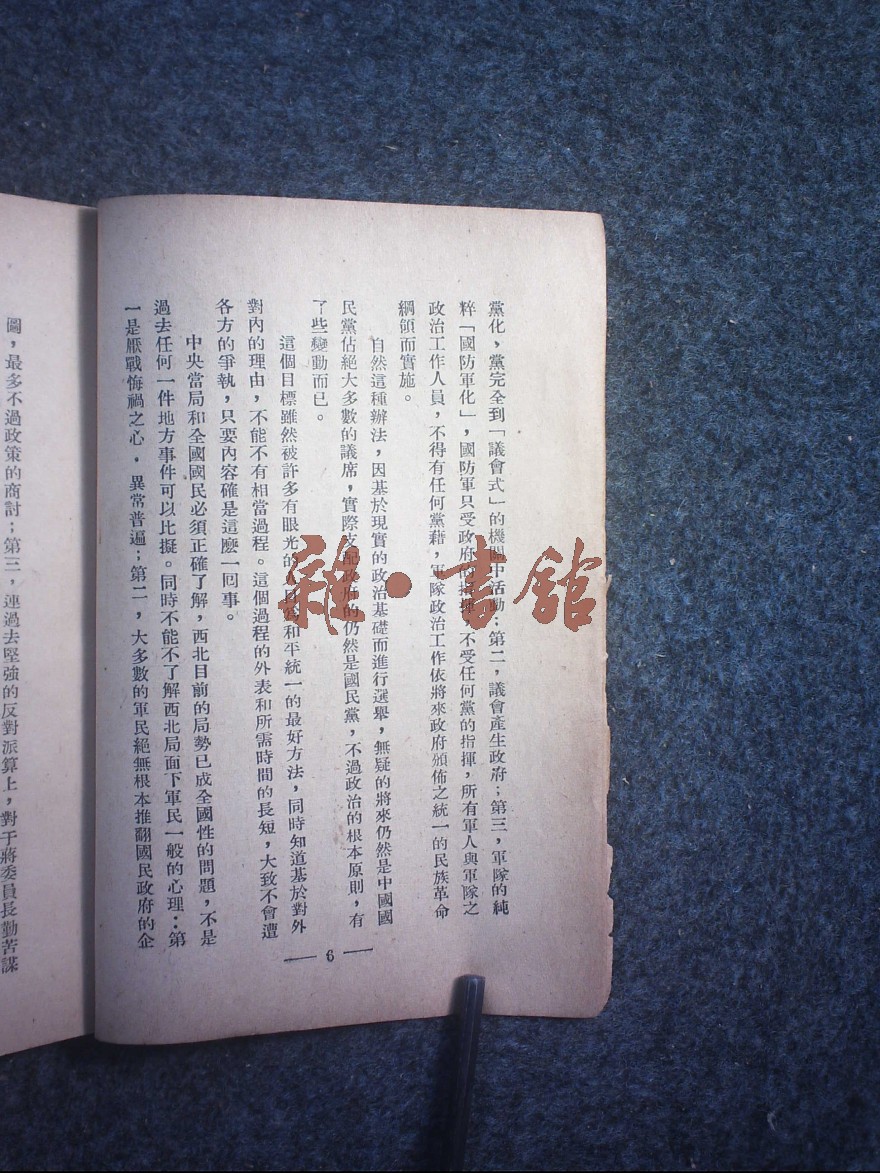 黨化，黨完全到「議會式」的機關中活動；第二，議會產生政府；第三，軍隊的純
粹「國防軍化」，國防軍只受政府的指揮，不受任何黨的指揮，所有軍人與軍隊之
政治工作人員，不得有任何黨藉，軍隊政治工作依將來政府頒佈之統一的民族革命
綱領而實施。
自然這種辦法，因基於現實的政治基礎而進行選舉，無疑的將來仍然是中國國
民黨佔絕大多數的議席，實際支配政府的仍然是國民黨，不過政治的根本原則，有
了些變動而已。
這個目標雖然被許多有眼光的人目為和平統一的最好方法，同時知道基於對外
對內的理由，不能不有相當過程。這個過程的外表和所需時間的長短，大致不會遭
各方的爭執，只要內容確是這麼一囘事。
中央當局和全國國民必須正確了解，西北目前的局勢已成全國性的問題，不是
過去任何一件地方事件可以比擬。同時不能不了解西北局面下軍民一般的心理：第
一是厭戰悔禍之心，異常普遍；第二，大多數的軍民絕無根本推翻國民政府的企
— 6 —
圖，最多不過政策的商討；第三，連過去堅強的反對派算上，對于蔣委員長勤苦謀
雜•書館